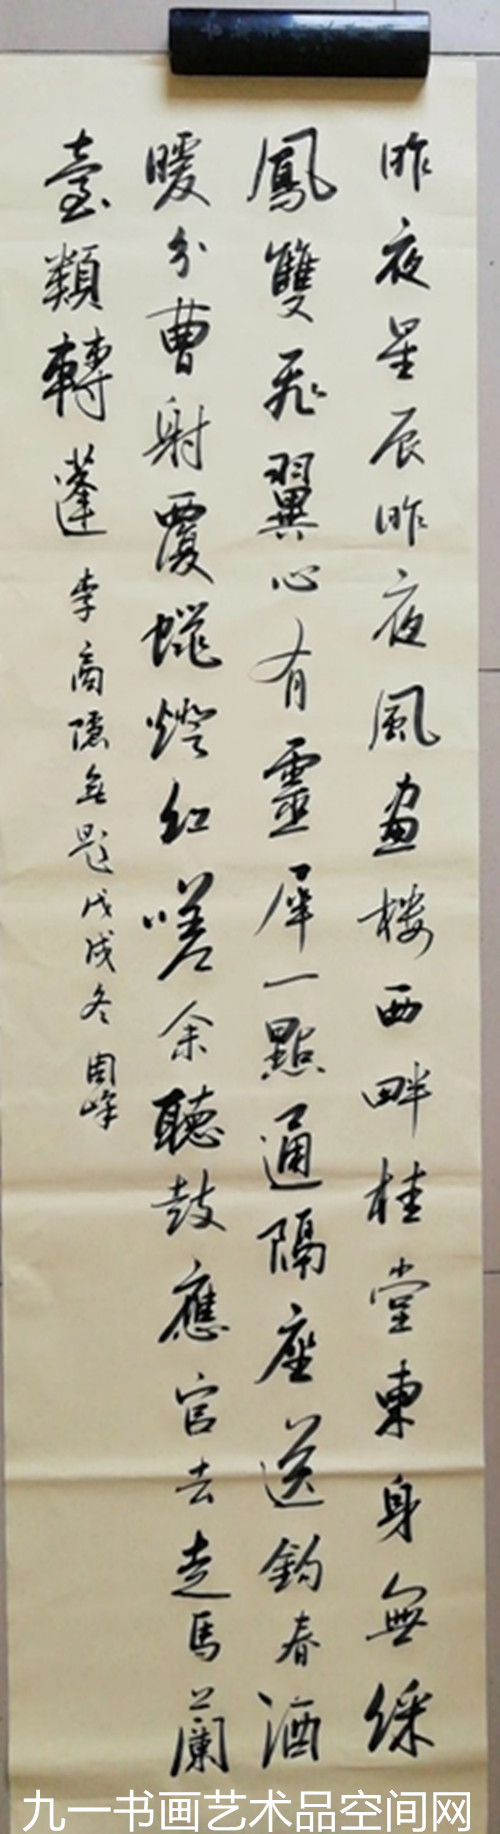 昨夜星辰昨夜風畫楼西畔桂堂東身無綵
鳳雙飛翼心有靈犀一點通隔座送鈎春酒
暖分曹射覆蠟燈紅嗟余聽鼓應官去走馬蘭
臺類轉蓬
李商隱無題戊戌冬周峰
九一书画艺术品空间网